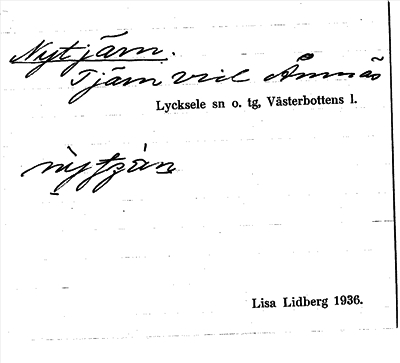 Nytjärn.
Tjärn vid Åmnäs
Lycksele sn o. tg, Västerbottens l.
nỳtjà̀rn
Lisa Lidberg 1936.